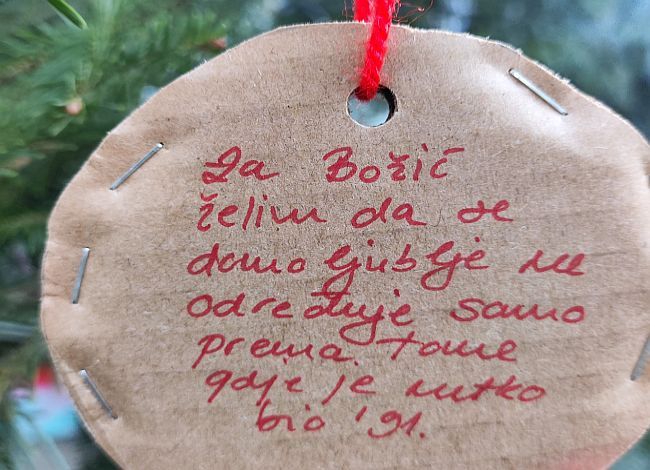 Za Božić
želim da se
domoljublje ne
određuje samo
prema tome
gdje je netko
bio '91.